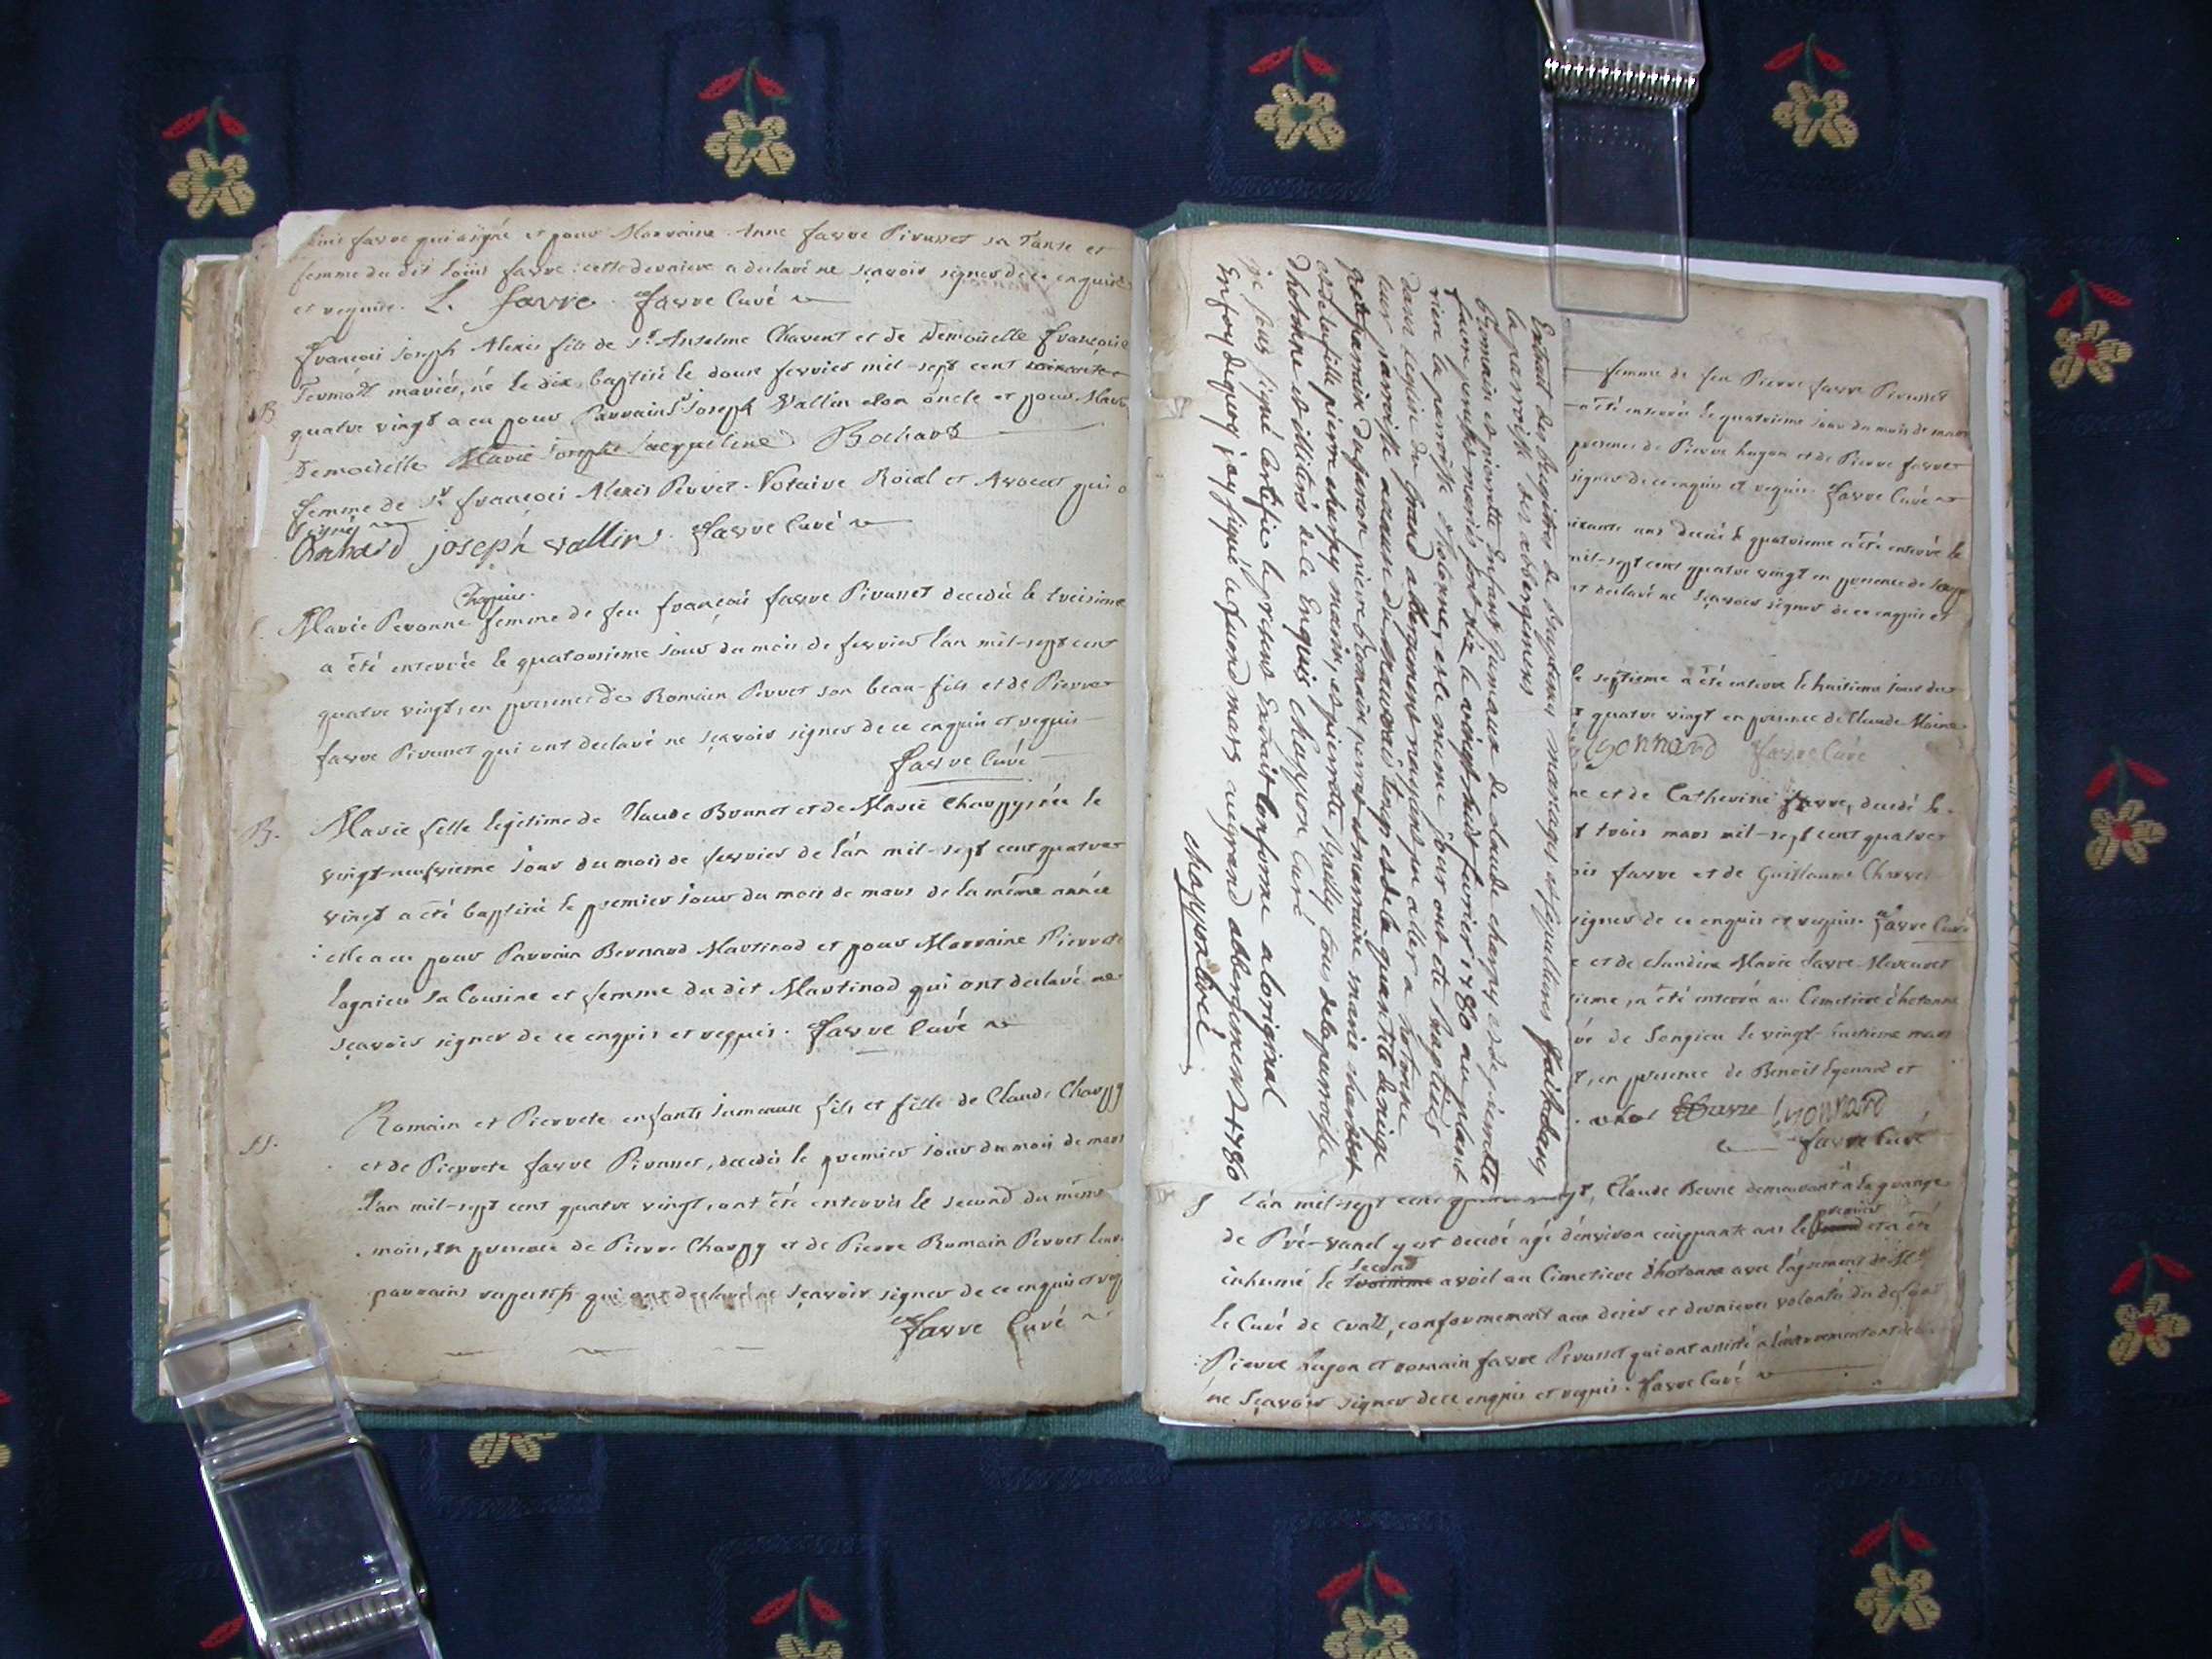 favre qui a signé et pour Marraine Anne favre Pirusset sa Tante et
femme du dit Loüis favre : cette derniere a declaré ne sçavoir signer de ce enquise
et requise. L. favre favre Curé
françois joseph Alexis fils de Sr. Anselme Chavent et de Demoiselle françoise
mariés, né le dix, baptisé le douze fevrier mil-sept cent
B
quatre vingt a eu pour Parrain Sr joseph Vallin son oncle et pour Marr
Demoiselle Marie josephe jacqueline Bochard
femme de Sr. françois Alexis Perret Notaire Roial et Avocat qui o
signé
Bochard joseph vallin favre Curé
Chapuis.
Marie Peronne femme de feu françois favre Pirusset decedée le treisieme
a été enterrée le quatorsieme jour du mois de fevrier l'an mil-sept cent
quatre vingt, en presence de Romain Perret son beau-fils et de Pierre
favre Pirusset qui ont declaré ne sçavoir signer de ce enquis et requis
favre Curé
B. Marie fille legitime de Claude Brunet et de Marie Charpy, née le
vingt-neufvieme jour du mois de fevrier de l'an mil-sept cent quatre
vingt a été baptisée le premier jour du mois de mars de la même année
elle a eu pour Parrain Bernard Martinod et pour Marraine Pierrete
Lagnieu sa Cousine et femme du dit Martinod qui ont declaré ne
sçavoir signer de ce enquis et requis. favre Curé
Romain et Pierrete enfants jumeaux fils et fille de Claude Charpy
et de Pierrete favre Pirusset, decedés le premier jour du mois de mars
l'an mil-sept cent quatre vingt, ont été enterrés le second du même
mois, en presence de Pierre Charpy et de Pierre Romain Perret leurs
parrains respectifs qui ont declaré ne sçavoir signer de ce enquis et req
favre Curé
Extrait des Registres de baptemes mariages et sepultures faits dans
la parroisse des abbergemens
Romain et pierrette Enfans Gumaux de claude charpy et de pierrette
favre pirusset mariés sont néz le vingt-huit fevrier 1780 au planet
riere la parroisse d'hotonne, et le meme jour ont été baptisés
dans l'eglise du Grand abbergement nayans pu aller a hotonne
leur parroisse acause du mauvais temps et de la quantité de neige
parrain du garcon pierre Romain perret et marraine marie
et de la fille pierre charpy marrin, et pierrette tous de la parroisse
d'hotonne et illiterés de ce Enquis chapuson Curé
je sous signé Certifie le present Extrait Conforme a loriginal
En foy dequoy j'ay signé le second mars au grand abbergement 1780
chapuson Curé
femme de feu Pierre favre Pirusset
a été enterrée le quatrieme jour du mois de mars
presence de Pierre hugon et de Pierre favre
signer de ce enquis et requis favre Curé
ans decedé le quatrieme a été enterré le
mil-sept cent quatre vingt en presence de
declaré ne sçavoir signer de ce enquis et
le septieme a été enterré le huitieme jour du
quatre vingt en presence de Claude
Lyonnard favre Curé
et de Catherine favre, decedé le
trois mars mil-sept cent quatre
favre et de Guillaume
signer de ce enquis et requis. favre Curé
et de claudine Marie favre
a été enterré au Cimetiere d'hotonne
de Songieu le vingt-huitieme mars
en presence de Benoit Lyonard et
favre Lyonnard
favre Curé
S L'an mil-sept cent quatre vingt, Claude Berne demeurant à la grange
premier
de Pré-vanel y est decedé agé d'environ cinquante ans le et a été
second
inhumé le troisieme avril au Cimetiere d'hotonne avec l'agrement de
le Curé de conformement aux desirs et dernieres volontés du defunt
Pierre hugon et romain favre Pirusset qui ont assisté a l'enterrement ont
ne sçavoir signer de ce enquis et requis. favre Curé